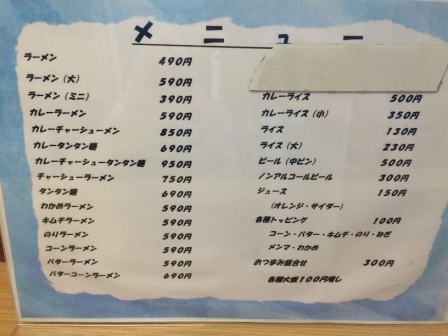 メニュー
ラーメン 490円
ラーメン（大） 590円
ラーメン（ミニ） 390円
カレーラーメン 590円
カレーチャーシューメン 850円
カレータンタン麺 690円
カレーチャーシュータンタン麺 950円
チャーシューラーメン 750円
タンタン麺 690円
わかめラーメン 590円
キムチラーメン 590円
のりラーメン 590円
コーンラーメン 590円
バターラーメン 590円
バターコーンラーメン 690円
カレーライス 500円
カレーライス（小） 350円
ライス 130円
ライス（大） 230円
ビール（中ビン） 500円
ノンアルコールビール 300円
ジュース 150円
（オレンジ・サイダー）
各種トッピング 100円
コーン・バター・キムチ・のり・ねぎ
メンマ・わかめ
おつまみ盛合せ 300円
各種大盛100円増し